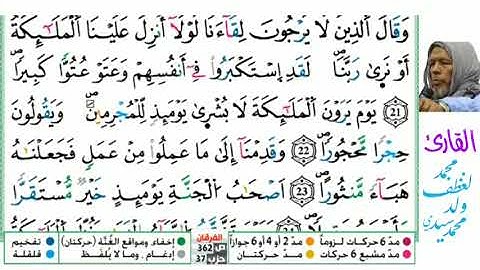 وَقَالَ اَ۬لذِينَ لَا يَرْجُونَ لِقَآءَنَا لَوْلَآ أُنزِلَ عَلَيْنَا اَ۬لْمَلَٰٓئِكَةُ
أَوْ نَر۪يٰ رَبَّنَاۖ لَقَدِ اِ۪سْتَكْبَرُواْ فِےٓ أَنفُسِهِمْ وَعَتَوْ عُتُوّاٗ كَبِيراٗۖ
21 يَوْمَ يَرَوْنَ اَ۬لْمَلَٰٓئِكَةَ لَا بُشْر۪يٰ يَوْمَئِذٖ لِّلْمُجْرِمِينَۖ وَيَقُولُونَ
حِجْراٗ مَّحْجُوراٗۖ 22 وَقَدِمْنَآ إِلَىٰ مَا عَمِلُواْ مِنْ عَمَلٖ فَجَعَلْنَٰهُ
هَبَآءٗ مَّنثُوراًۖ 23 اَصْحَٰبُ اُ۬لْجَنَّةِ يَوْمَئِذٍ خَيْرٞ مُّسْتَقَرّاٗ
القارئ
محمد
لغظف
ولد
محمد سيدي
مدّ 6 حركات لزوماً
مدّ 2 أو 4 أو 6 جوازاً
مدّ مشبع 6 حركات
مدّ حركتان
الفرقان
ص 362
حزب 37
إخفاء، ومواقع الغُنَّة (حركتان)
إدغام، وما لا يُلفَظ
تفخيم
قلقلة